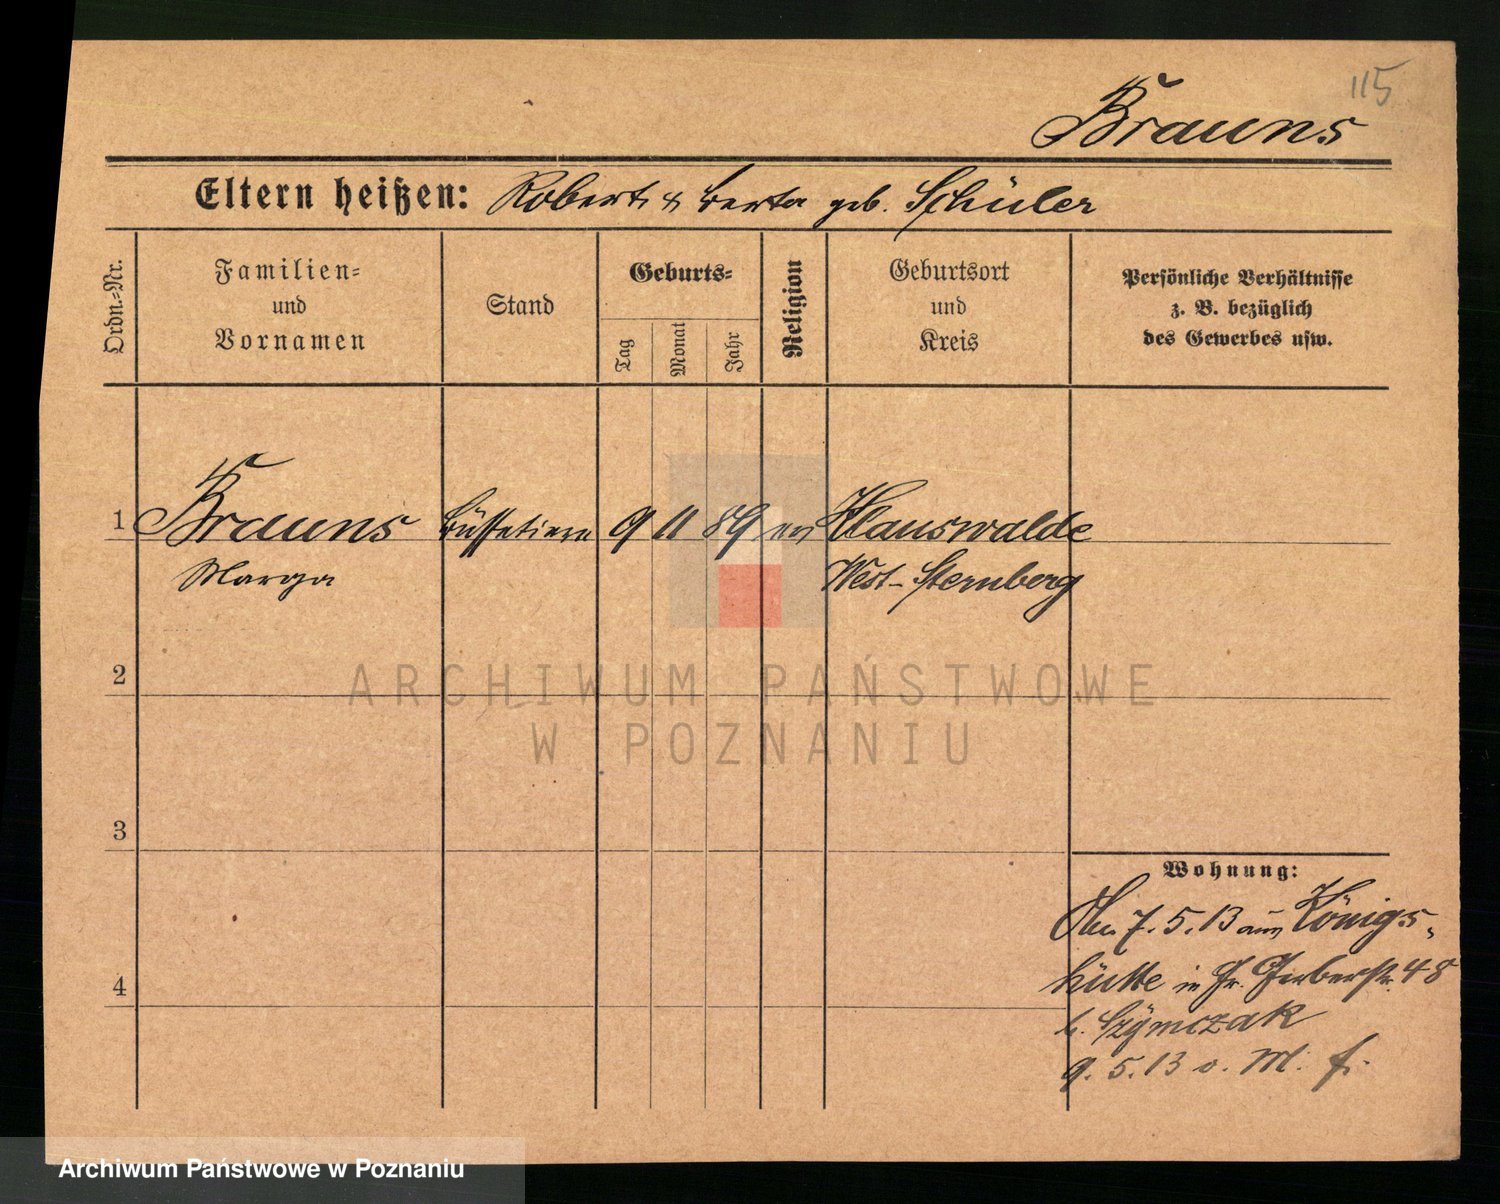 115
Brauns
Eltern heißen: Robert & Berta geb. Schüler
Ordn.-Nr.
Familien- und Vornamen
Stand
Geburts-
Tag
Monat
Jahr
Religion
Geburtsort und Kreis
Persönliche Verhältnisse
z. B. bezüglich
des Gewerbes usw.
1 Brauns Büffetiere 9 11 89 ev Klauswalde
Marga West-Sternberg
2
3
4
Wohnung:
7.5.13 aus Königs-
hütte in Gr. Gerberstr. 48
b. Szymczak
9.5.13 o. M. f.
ARCHIWUM PAŃSTWOWE
W POZNANIU
Archiwum Państwowe w Poznaniu